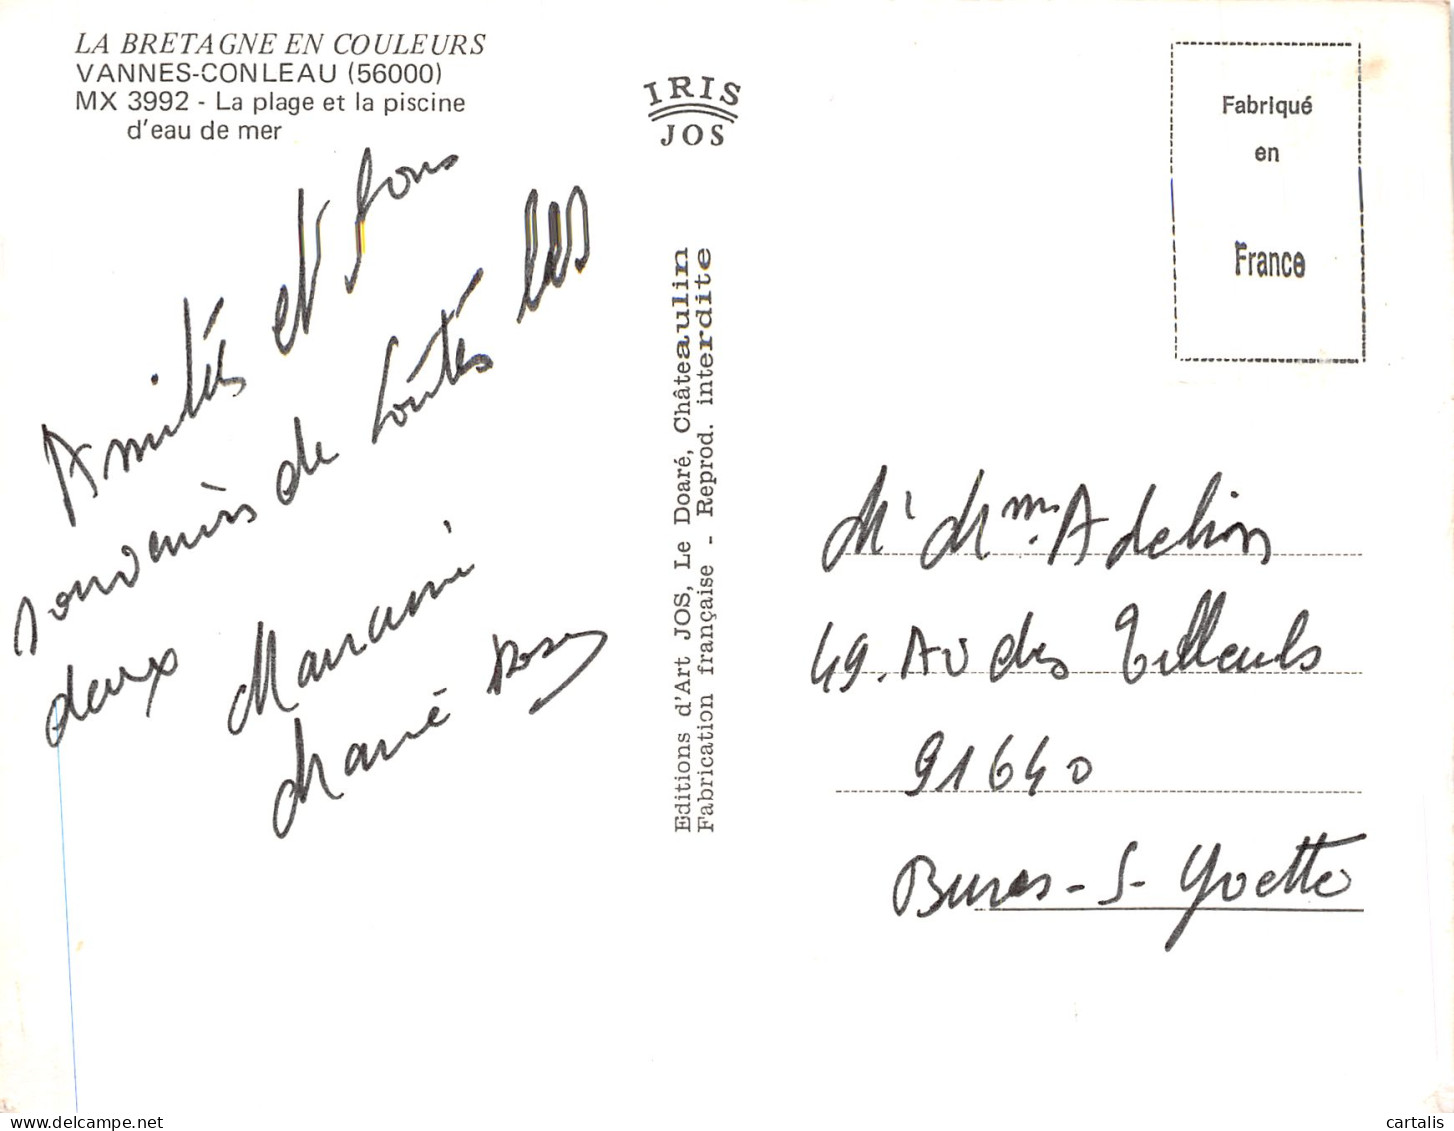 LA BRETAGNE EN COULEURS
VANNES-CONLEAU (56000)
MX 3992 - La plage et la piscine
d'eau de mer
IRIS
JOS
Fabriqué
en
France
Amitiés et bons
souvenirs de toutes les
deux
Marie
Editions d'Art JOS, Le Doaré, Châteaulin
Fabrication française - Reprod. interdite
Mr Mme. Adelion
49. Av des Tilleuls
91640
Bures-S-Yvette
www.delcampe.net
cartalis